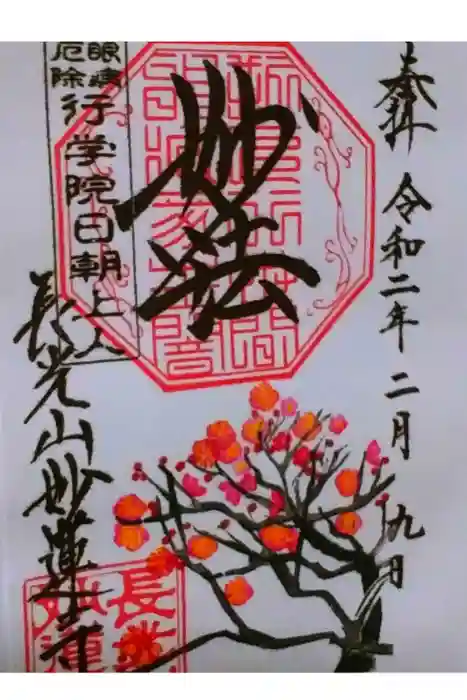 奉拝
令和二年二月九日
妙法
眼病
厄除
行学院日朝上人
長光山妙蓮寺